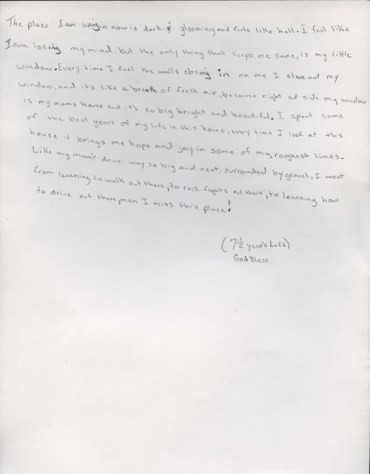 The place I am living in now is dark & glooming and feels like hell. I feel like
I am losing my mind but the only thing that keeps me sane, is my little
window. Every time I feel the walls closing in on me I stare out my
window, and its like a breath of fresh air, because right out side my window
is my moms house and its so big bright and beautiful. I spent some
of the best years of my life in this house, every time I look at this
house it brings me hope and joy in some of my roughest times.
Like my mom's drive way so big and neat, surrounded by gravel, I went
from learning to walk out there, to rock fights out there, to learning how
to drive out there, man I miss this place!
(7½ years Life)
God Bless